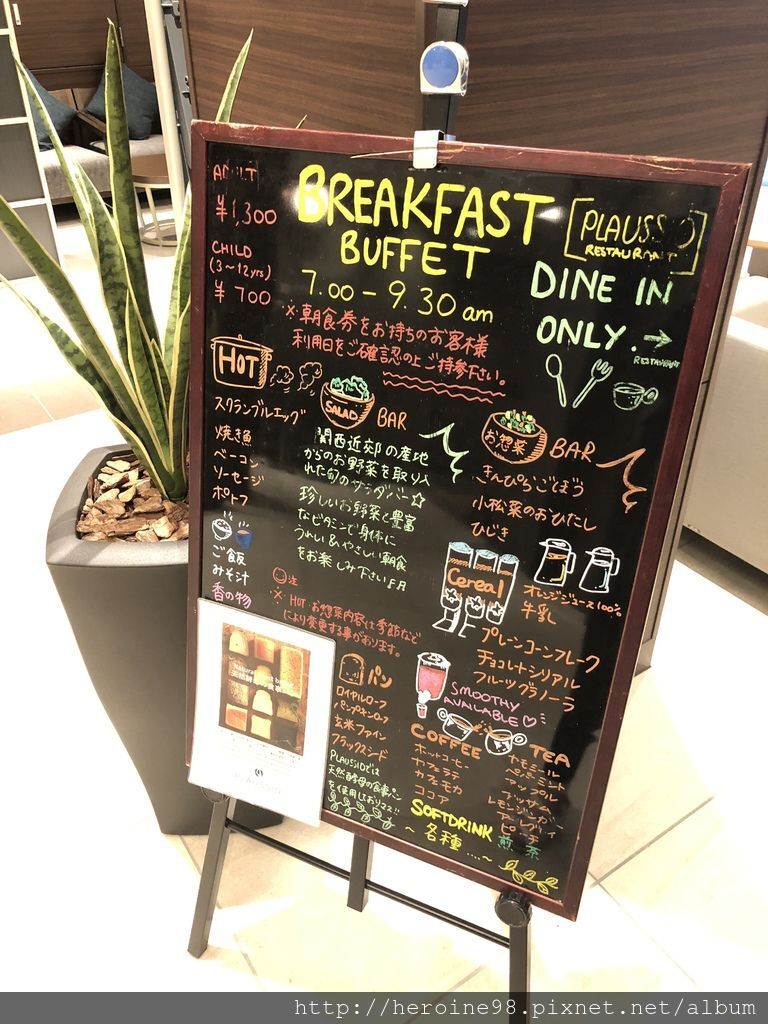 BREAKFAST
BUFFET
7.00 - 9.30 am
¥1,300
CHILD
(3~12yrs)
¥ 700
RESTAURANT
DINE IN
ONLY.→
RESTAURANT
※朝食券をお持ちのお客様
利用日をご確認の上ご持参下さい。
HOT
スクランブルエッグ
焼き魚
ベーコン
ソーセージ
ポトフ
ご飯
みそ汁
香の物
SALAD BAR
関西近郊の産地
からのお野菜を取り入
れた旬のサラダバー☆
珍しいお野菜と豊富
なビタミンで身体に
うれしい&やさしい朝食
をお楽しみ下さい♪
注
※ HOT お惣菜内容は季節など
により変更する事があります。
お惣菜 BAR
きんぴらごぼう
小松菜のおひたし
ひじき
オレンジジュース100%
牛乳
Cereal
プレーンコーンフレーク
チョコレートシリアル
フルーツグラノーラ
パン
ロイヤルローフ
パンプキンローフ
玄米ファイン
フラックスシード
PLAUSSIOでは
天然酵母の食事パン
を使用しております
SMOOTHY
AVAILABLE♡
COFFEE
ホットコーヒー
カフェラテ
カフェモカ
ココア
TEA
カモミール
ペパーミント
アップル
レモンジンジャー
ピーチ
煎茶
SOFTDRINK
~ 各種 ....~
http://heroine98.pixnet.net/album